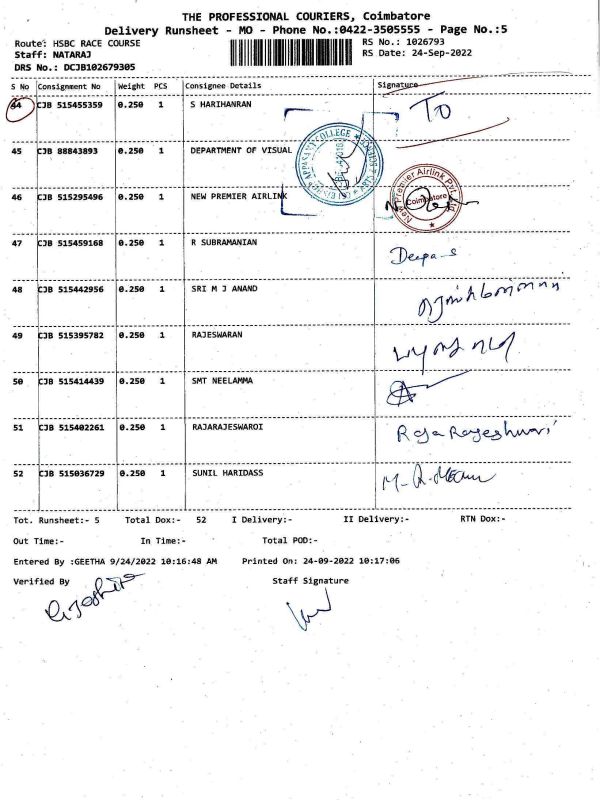 THE PROFESSIONAL COURIERS, Coimbatore
Delivery Runsheet - MO - Phone No.:0422-3505555 - Page No.:5
Route: HSBC RACE COURSE
RS No.: 1026793
Staff: NATARAJ
RS Date: 24-Sep-2022
DRS No.: DCJB102679305
S No Consignment No Weight PCS Consignee Details Signature
44 CJB 515455359 0.250 1 S HARIHANRAN To
45 CJB 88843893 0.250 1 DEPARTMENT OF VISUAL
46 CJB 515295496 0.250 1 NEW PREMIER AIRLINK
New Premier Airlink Pvt. Ltd
Coimbatore
47 CJB 515459168 0.250 1 R SUBRAMANIAN Deepa S
48 CJB 515442956 0.250 1 SRI M J ANAND
49 CJB 515395782 0.250 1 RAJESWARAN
50 CJB 515414439 0.250 1 SMT NEELAMMA
51 CJB 515402261 0.250 1 RAJARAJESWAROI Raja Rajeshwari
52 CJB 515036729 0.250 1 SUNIL HARIDASS
Tot. Runsheet:- 5 Total Dox:- 52 I Delivery:- II Delivery:- RTN Dox:-
Out Time:- In Time:- Total POD:-
Entered By :GEETHA 9/24/2022 10:16:48 AM Printed On: 24-09-2022 10:17:06
Verified By Staff Signature